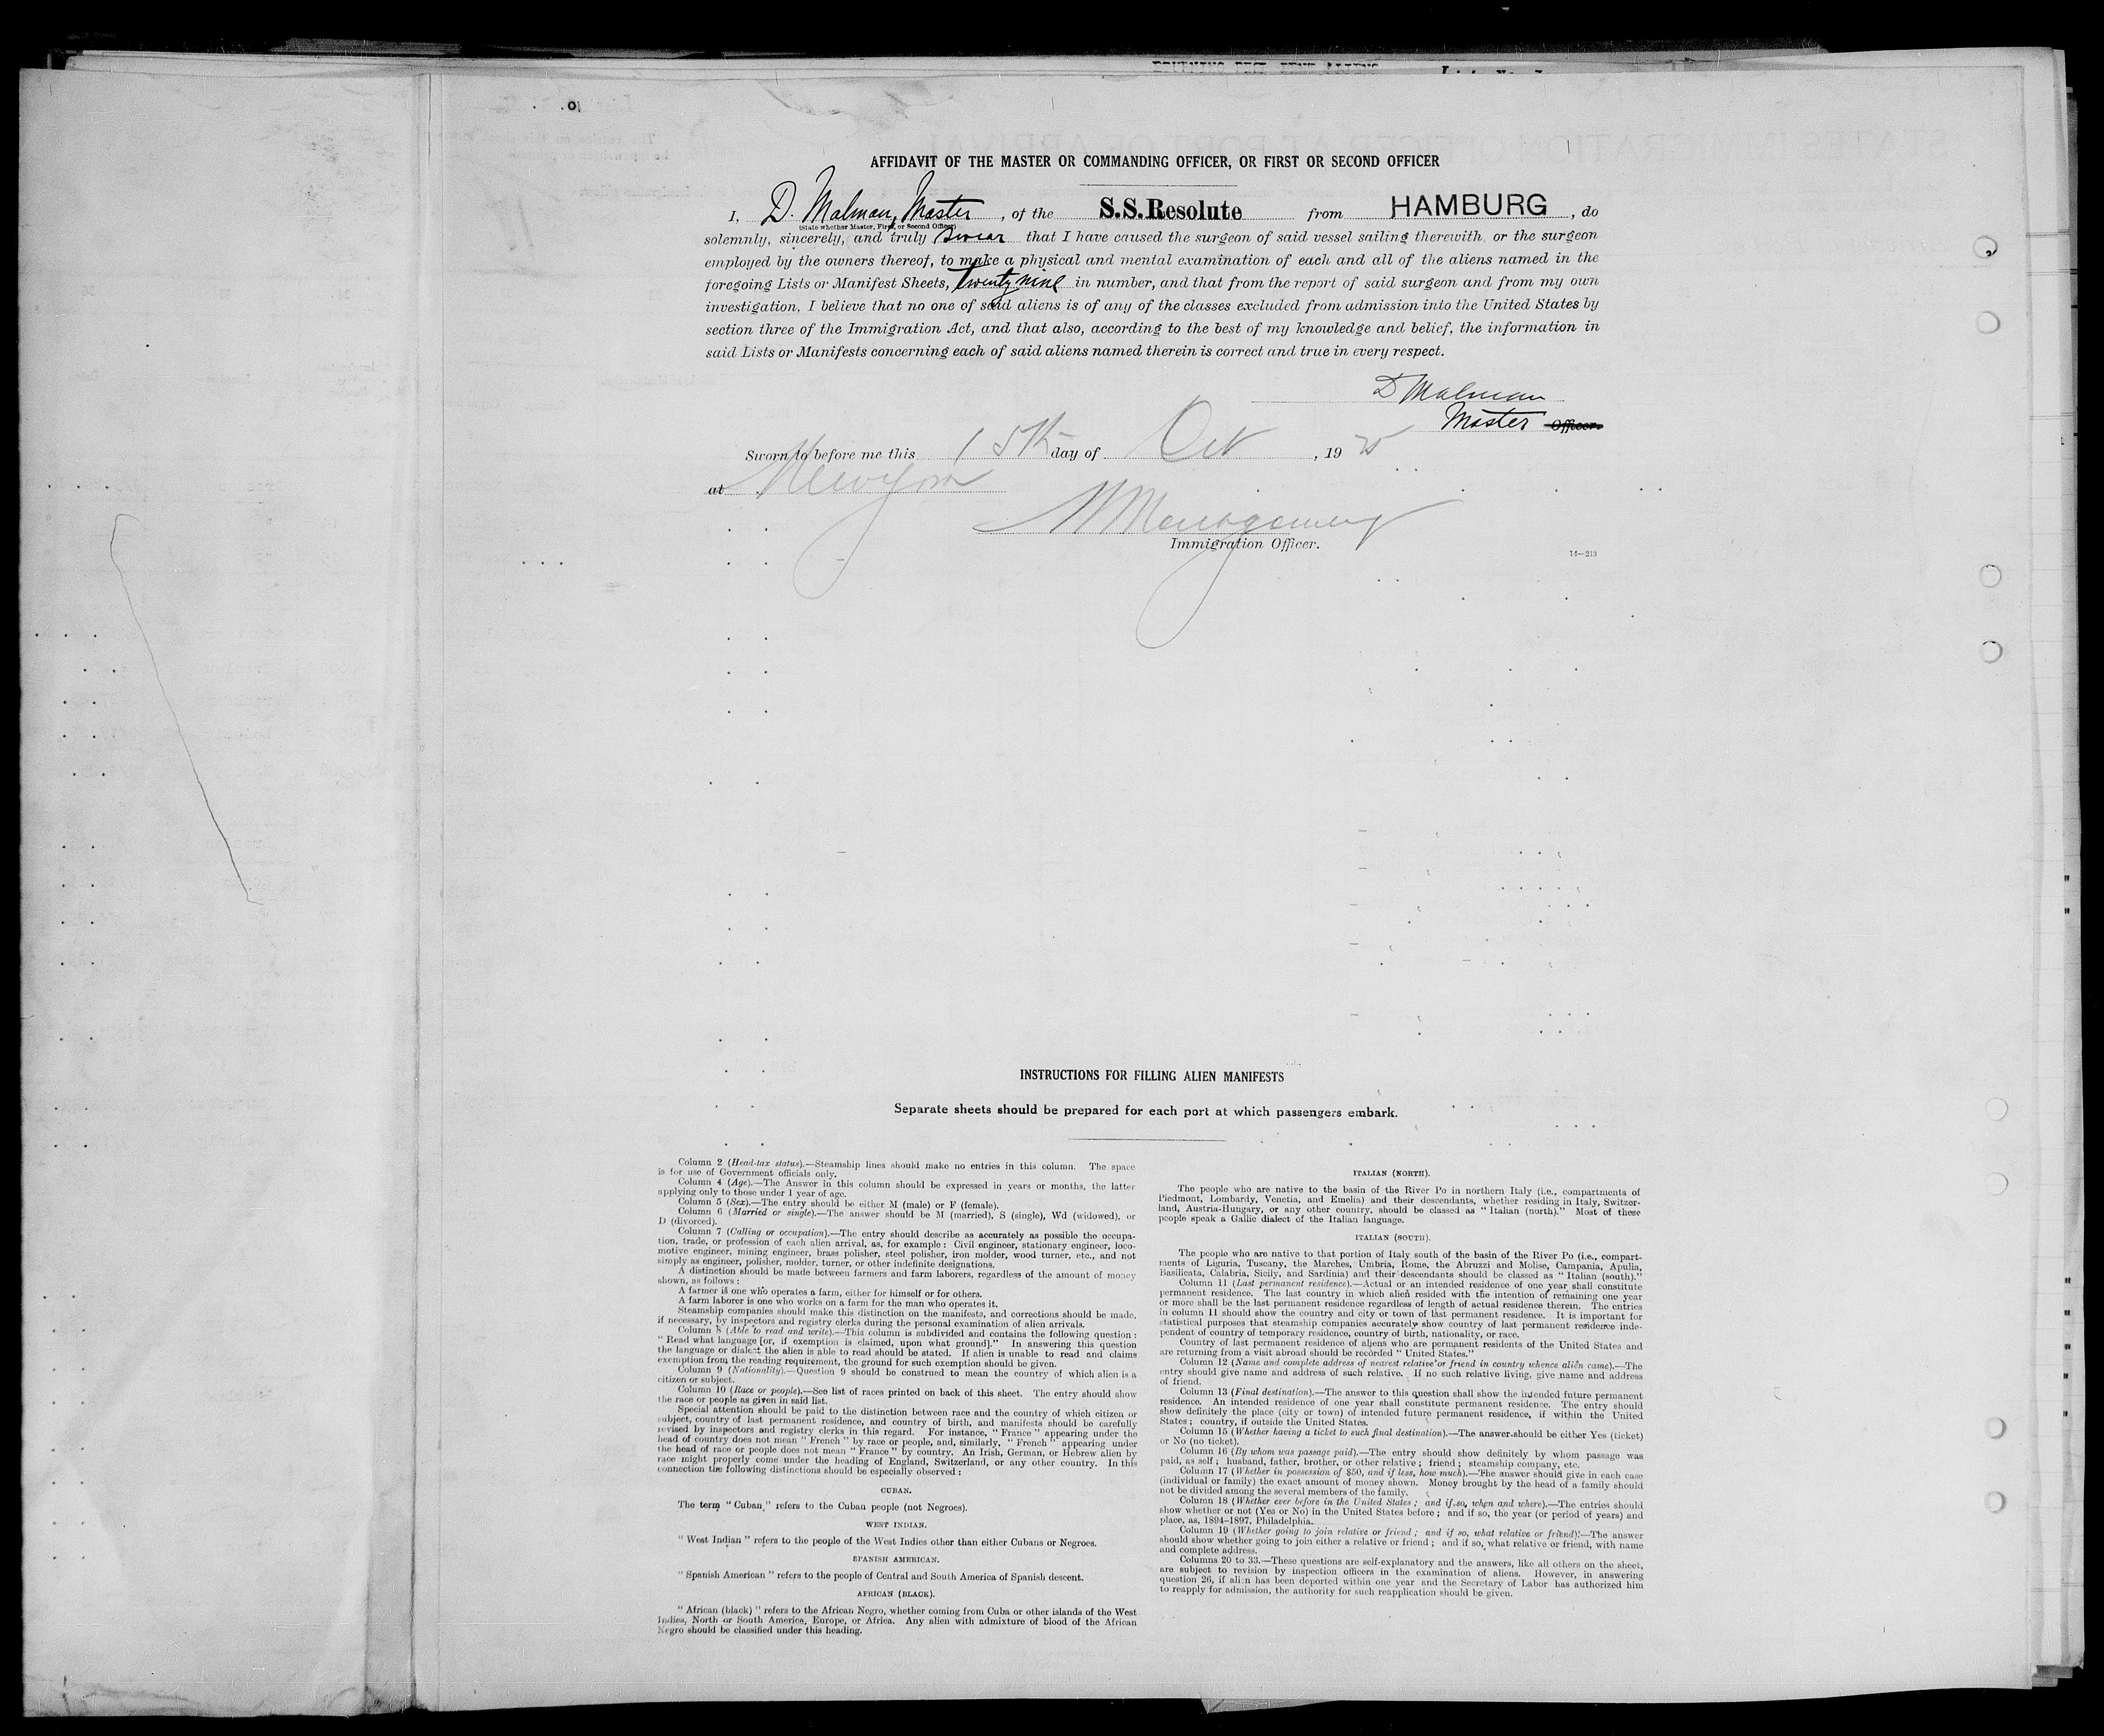 AFFIDAVIT OF THE MASTER OR COMMANDING OFFICER, OR FIRST OR SECOND OFFICER
I, D. Malman, Master, of the S.S. Resolute from HAMBURG, do
(State whether Master, First, or Second Officer)
solemnly, sincerely, and truly swear that I have caused the surgeon of said vessel sailing therewith, or the surgeon
employed by the owners thereof, to make a physical and mental examination of each and all of the aliens named in the
foregoing Lists or Manifest Sheets, Twenty nine in number, and that from the report of said surgeon and from my own
investigation, I believe that no one of said aliens is of any of the classes excluded from admission into the United States by
section three of the Immigration Act, and that also, according to the best of my knowledge and belief, the information in
said Lists or Manifests concerning each of said aliens named therein is correct and true in every respect.
D Malman
Master Officer.
Sworn to before me this 15th day of Oct, 1925
at New York
Montgomery
Immigration Officer.
14—213
INSTRUCTIONS FOR FILLING ALIEN MANIFESTS
Separate sheets should be prepared for each port at which passengers embark.
Column 2 (Head-tax status).—Steamship lines should make no entries in this column. The space
is for use of Government officials only.
Column 4 (Age).—The Answer in this column should be expressed in years or months, the latter
applying only to those under 1 year of age.
Column 5 (Sex).—The entry should be either M (male) or F (female).
Column 6 (Married or single).—The answer should be M (married), S (single), Wd (widowed), or
D (divorced).
Column 7 (Calling or occupation).—The entry should describe as accurately as possible the occupa-
tion, trade, or profession of each alien arrival, as, for example: Civil engineer, stationary engineer, loco-
motive engineer, mining engineer, brass polisher, steel polisher, iron molder, wood turner, etc., and not
simply as engineer, polisher, molder, turner, or other indefinite designations.
A distinction should be made between farmers and farm laborers, regardless of the amount of money
shown, as follows:
A farmer is one who operates a farm, either for himself or for others.
A farm laborer is one who works on a farm for the man who operates it.
Steamship companies should make this distinction on the manifests, and corrections should be made,
if necessary, by inspectors and registry clerks during the personal examination of alien arrivals.
Column 8 (Able to read and write).—This column is subdivided and contains the following question:
"Read what language [or, if exemption is claimed, upon what ground]." In answering this question
the language or dialect the alien is able to read should be stated. If alien is unable to read and claims
exemption from the reading requirement, the ground for such exemption should be given.
Column 9 (Nationality).—Question 9 should be construed to mean the country of which alien is a
citizen or subject.
Column 10 (Race or people).—See list of races printed on back of this sheet. The entry should show
the race or people as given in said list.
Special attention should be paid to the distinction between race and the country of which citizen or
subject, country of last permanent residence, and country of birth, and manifests should be carefully
revised by inspectors and registry clerks in this regard. For instance, "France" appearing under the
head of country does not mean "French" by race or people, and, similarly, "French" appearing under
the head of race or people does not mean "France" by country. An Irish, German, or Hebrew alien by
race might properly come under the heading of England, Switzerland, or any other country. In this
connection the following distinctions should be especially observed:
CUBAN.
The term "Cuban," refers to the Cuban people (not Negroes).
WEST INDIAN.
"West Indian" refers to the people of the West Indies other than either Cubans or Negroes.
SPANISH AMERICAN.
"Spanish American" refers to the people of Central and South America of Spanish descent.
AFRICAN (BLACK).
"African (black)" refers to the African Negro, whether coming from Cuba or other islands of the West
Indies, North or South America, Europe, or Africa. Any alien with admixture of blood of the African
Negro should be classified under this heading.
ITALIAN (NORTH).
The people who are native to the basin of the River Po in northern Italy (i.e., compartments of
Piedmont, Lombardy, Venetia, and Emelia) and their descendants, whether residing in Italy, Switzer-
land, Austria-Hungary, or any other country, should be classed as "Italian (north)." Most of these
people speak a Gallic dialect of the Italian language.
ITALIAN (SOUTH).
The people who are native to that portion of Italy south of the basin of the River Po (i.e., compart-
ments of Liguria, Tuscany, the Marches, Umbria, Rome, the Abruzzi and Molise, Campania, Apulia,
Basilicata, Calabria, Sicily, and Sardinia) and their descendants should be classed as "Italian (south)."
Column 11 (Last permanent residence).—Actual or an intended residence of one year shall constitute
permanent residence. The last country in which alien resided with the intention of remaining one year
or more shall be the last permanent residence regardless of length of actual residence therein. The entries
in column 11 should show the country and city or town of last permanent residence. It is important for
statistical purposes that steamship companies accurately show country of last permanent residence inde-
pendent of country of temporary residence, country of birth, nationality, or race.
Country of last permanent residence of aliens who are permanent residents of the United States and
are returning from a visit abroad should be recorded "United States."
Column 12 (Name and complete address of nearest relative or friend in country whence alien came).—The
entry should give name and address of such relative. If no such relative living, give name and address
of friend.
Column 13 (Final destination).—The answer to this question shall show the intended future permanent
residence. An intended residence of one year shall constitute permanent residence. The entry should
show definitely the place (city or town) of intended future permanent residence, if within the United
States; country, if outside the United States.
Column 15 (Whether having a ticket to such final destination).—The answer should be either Yes (ticket)
or No (no ticket).
Column 16 (By whom was passage paid).—The entry should show definitely by whom passage was
paid, as self; husband, father, brother, or other relative; friend; steamship company, etc.
Column 17 (Whether in possession of $50, and if less, how much).—The answer should give in each case
(individual or family) the exact amount of money shown. Money brought by the head of a family should
not be divided among the several members of the family.
Column 18 (Whether ever before in the United States; and if so, when and where).—The entries should
show whether or not (Yes or No) in the United States before; and if so, the year (or period of years) and
place, as, 1894–1897, Philadelphia.
Column 19 (Whether going to join relative or friend; and if so, what relative or friend).—The answer
should show whether going to join either a relative or friend; and if so, what relative or friend, with name
and complete address.
Columns 20 to 33.—These questions are self-explanatory and the answers, like all others on the sheet,
are subject to revision by inspection officers in the examination of aliens. However, in answering
question 26, if alien has been deported within one year and the Secretary of Labor has authorized him
to reapply for admission, the authority for such reapplication should be given.